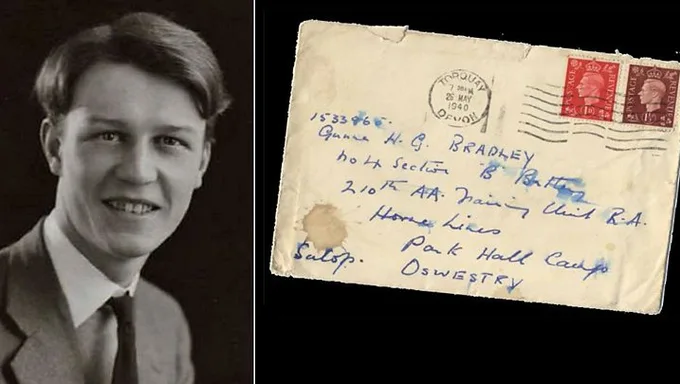 TORQUAY
26 MAY
1940
DEVON
POSTAGE REVENUE
POSTAGE REVENUE
Gunner H. G. BRADLEY
No 4 Section 'B' Battery
210th AA. Training Unit R.A.
Home Lines
Park Hall Camp
OSWESTRY
Salop.